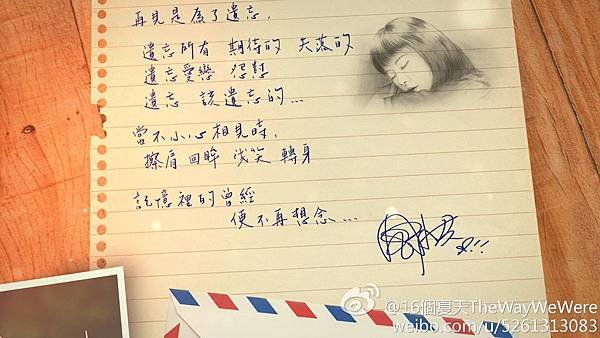 再見是為了遺忘,
遺忘所有 期待的 失落的
遺忘愛戀 怨懟
遺忘 該遺忘的...
當不小心相見時,
擦肩 回眸 淺笑 轉身
記憶裡的曾經
便不再想念...
@16個夏天TheWayWeWere
weibo.com/u/5261313083